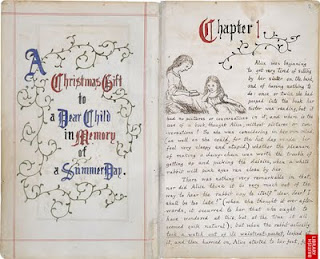 A
Christmas Gift
to
a Dear Child
in Memory
of
a Summer Day.
Chapter I
Alice was beginning
to get very tired of sitting
by her sister on the bank,
and of having nothing to
do: once or twice she had
peeped into the book her
sister was reading, but it
had no pictures or conversations in it, and where is the
use of a book, thought Alice, without pictures or conver-
-sations? So she was considering in her own mind,
as well as she could, for the hot day made her
feel very sleepy and stupid, whether the pleasure
of making a daisy-chain was worth the trouble of
getting up and picking the daisies, when a white
rabbit with pink eyes ran close by her.
There was nothing very remarkable in that,
nor did Alice think it so very much out of the
way to hear the rabbit say to itself "dear, dear! I
shall be too late!" (when she thought it over after-
-wards, it occurred to her that she ought to
have wondered at this, but at the time it all
seemed quite natural); but when the rabbit actually
took a watch out of its waistcoat-pocket, looked at
it, and then hurried on, Alice started to her feet, for